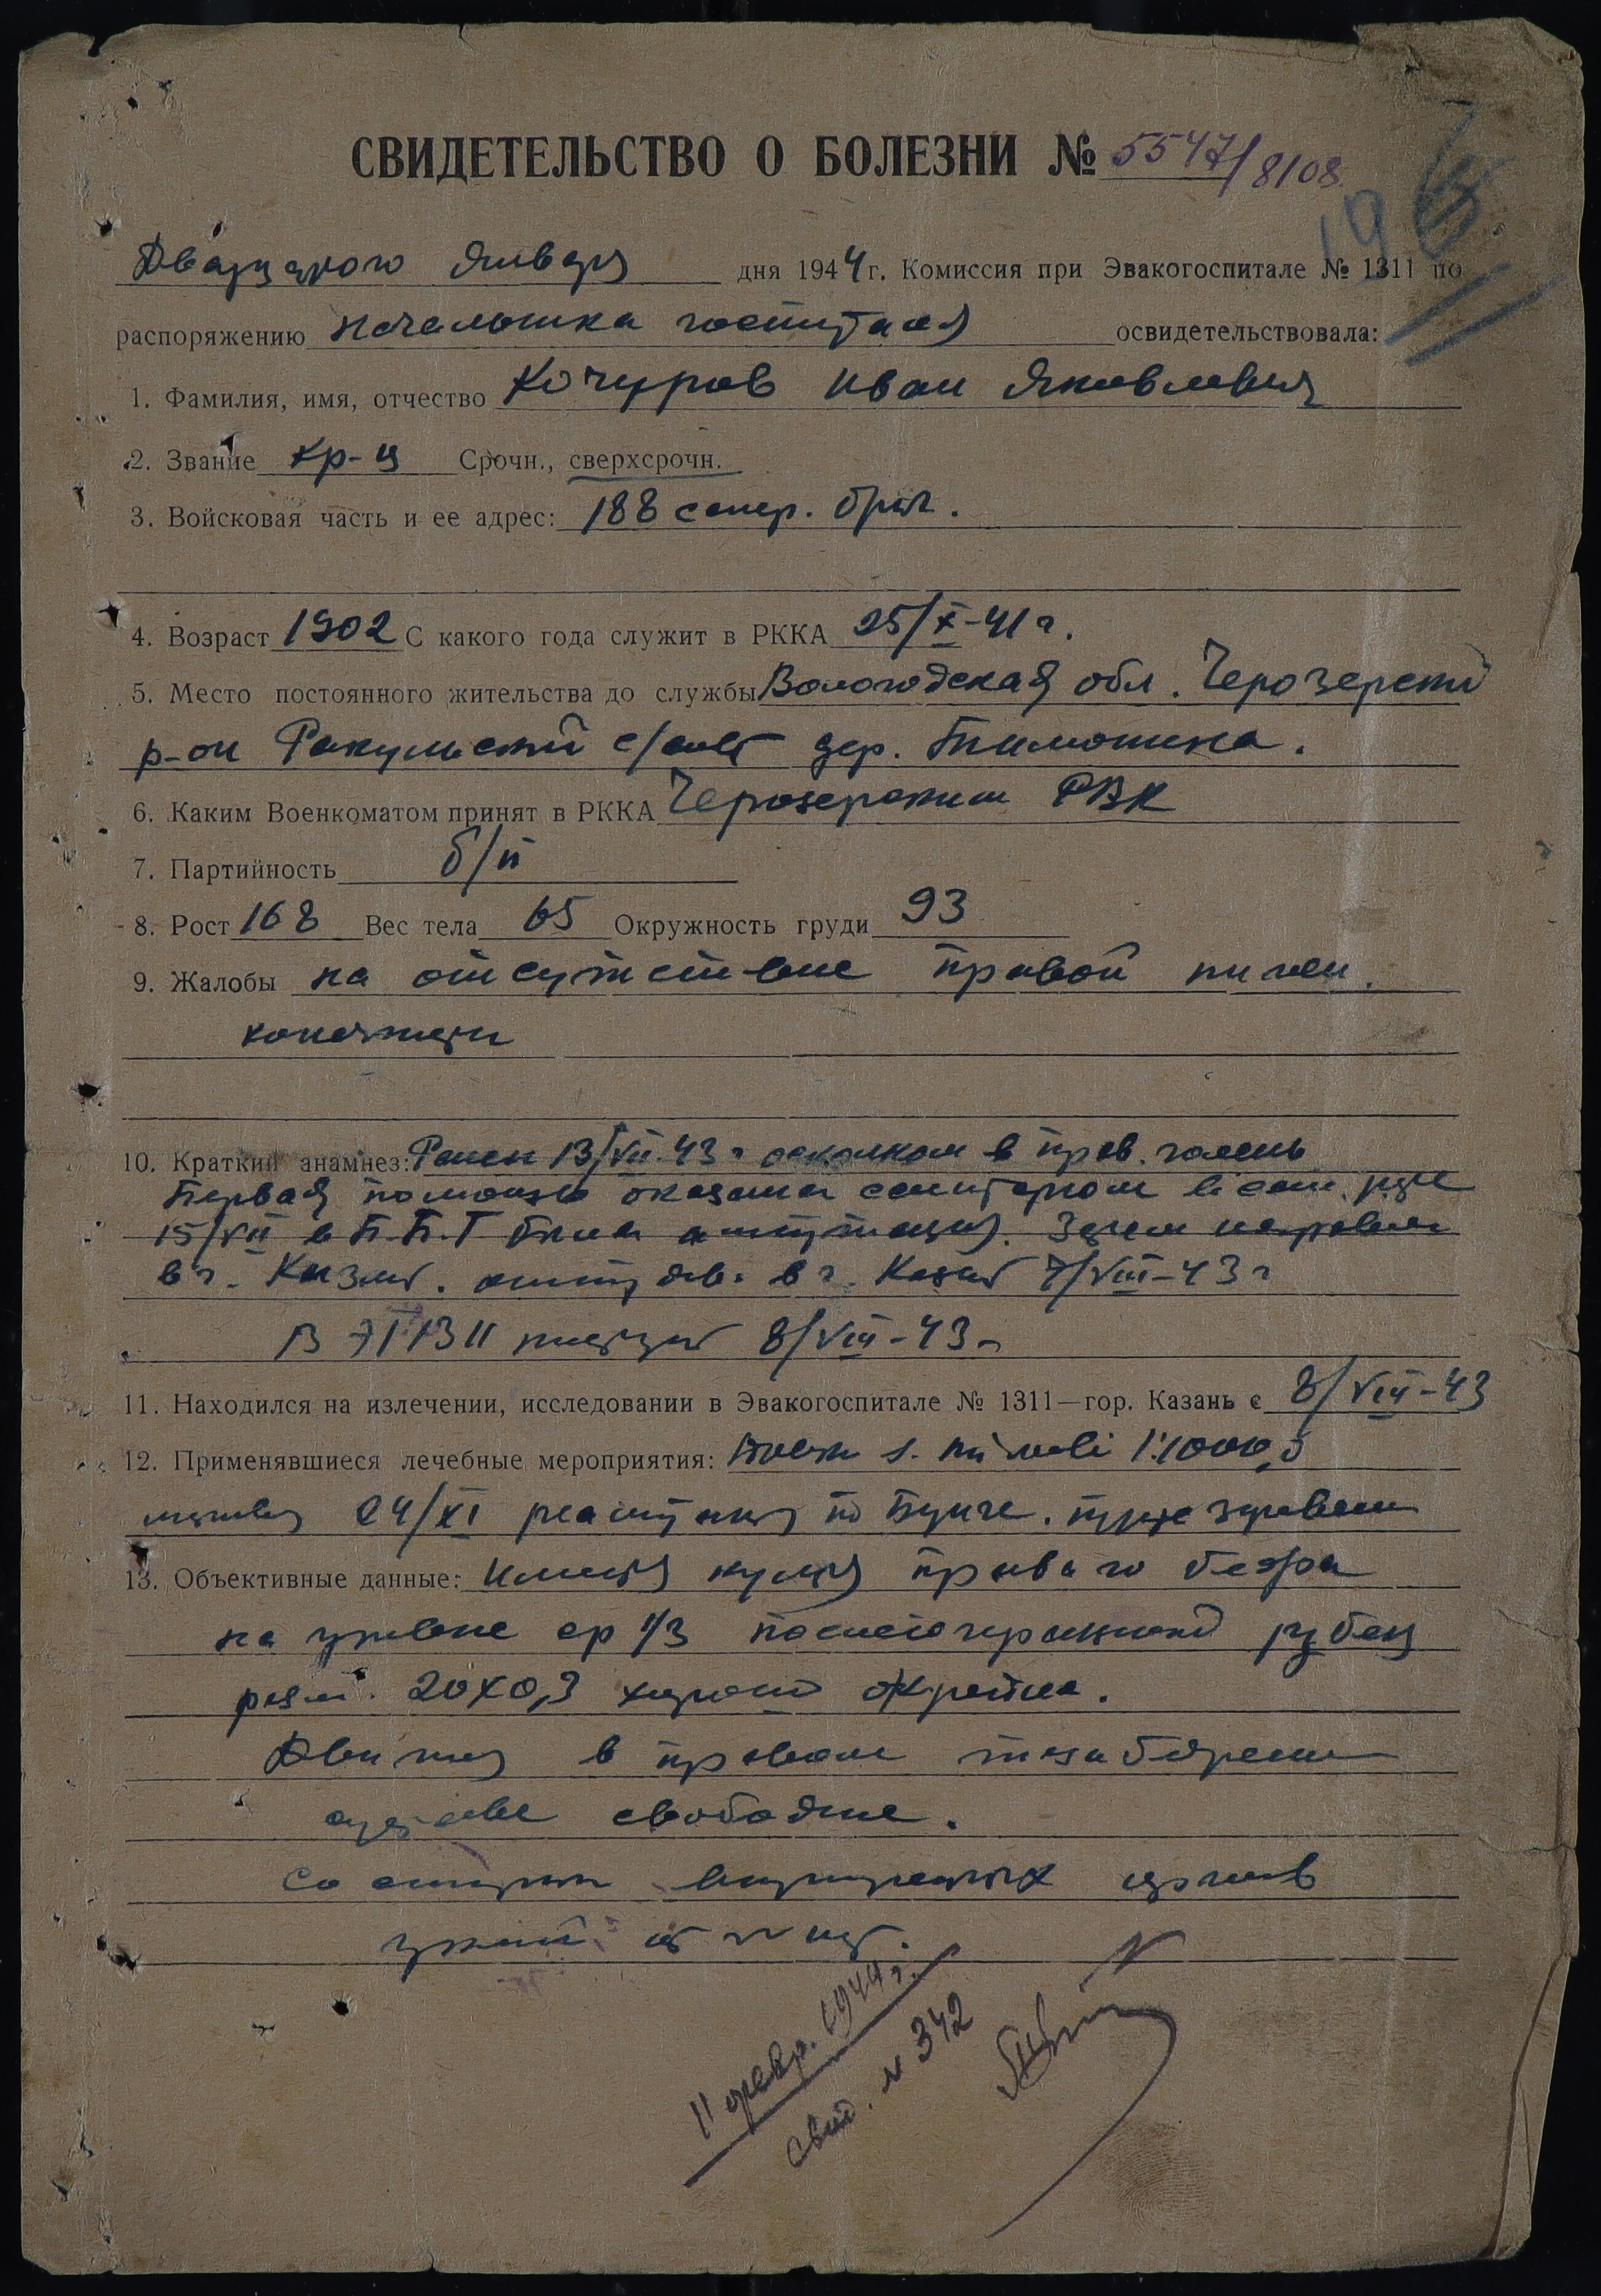 СВИДЕТЕЛЬСТВО О БОЛЕЗНИ № 5547/8108
19
Двадцатого января дня 1944 г. Комиссия при Эвакогоспитале № 1311 по
распоряжению начальника госпиталя освидетельствовала:
1. Фамилия, имя, отчество Кочуров Иван Яковлевич
2. Звание кр-ц Срочн., сверхсрочн.
3. Войсковая часть и ее адрес: 188 сапер. бриг.
4. Возраст 1902 С какого года служит в РККА 25/X-41 г.
5. Место постоянного жительства до службы Вологодская обл. Черозерский
р-он Ракульский с/сов дер. Тимошина.
6. Каким Военкоматом принят в РККА Черозерским РВК
7. Партийность б/п
8. Рост 168 Вес тела 65 Окружность груди 93
9. Жалобы на отсутствие правой нижн.
конечности
10. Краткий анамнез: Ранен 13/VII-43 г осколком в прав. голень
Первая помощь оказана санитаром в сан.
15/VII в П.П.Г была ампутация. Затем направлен
в г. в г. Казань 7/VIII-43 г
В ЭГ 1311 8/VIII-43 г
11. Находился на излечении, исследовании в Эвакогоспитале № 1311—гор. Казань с 8/VIII-43
12. Применявшиеся лечебные мероприятия: 1:1000,0
24/XI реампутация по Бунге.
13. Объективные данные: Имеется культя правого бедра
на уровне ср 1/3 послеоперационный рубец
разм. 20х0,3 хорошо окрепш.
Движения в правом тазобедрен
суставе свободные.
Со стороны внутренних органов
11 февр. 1944 г.
свид. № 342